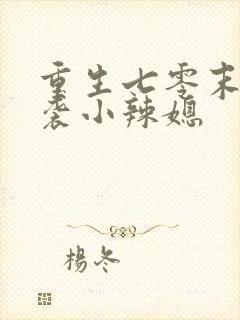 重生七零末
袭小辣媳
楊冬